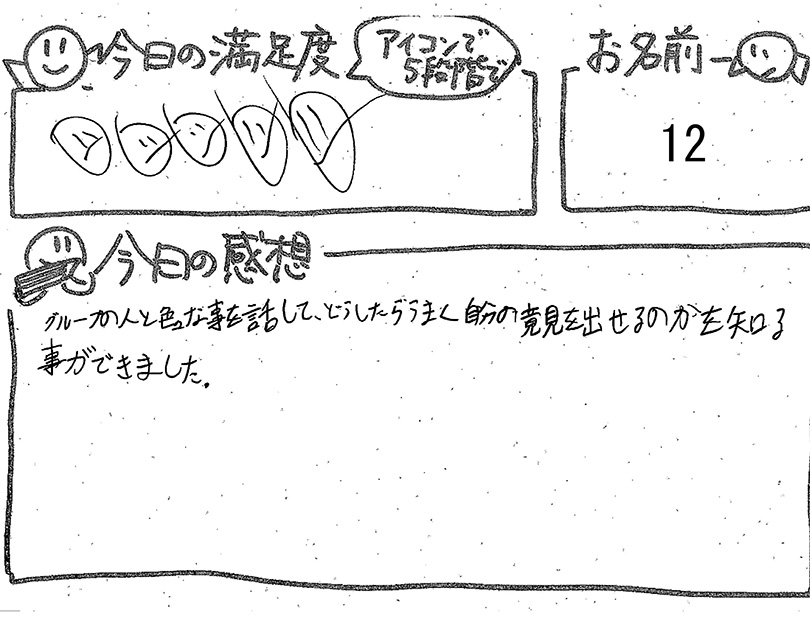 今日の満足度
アイコンで
5段階で
お名前
12
今日の感想
グループの人と色々な事を話して、どうしたらうまく自分の意見を出せるのかを知る
事ができました。